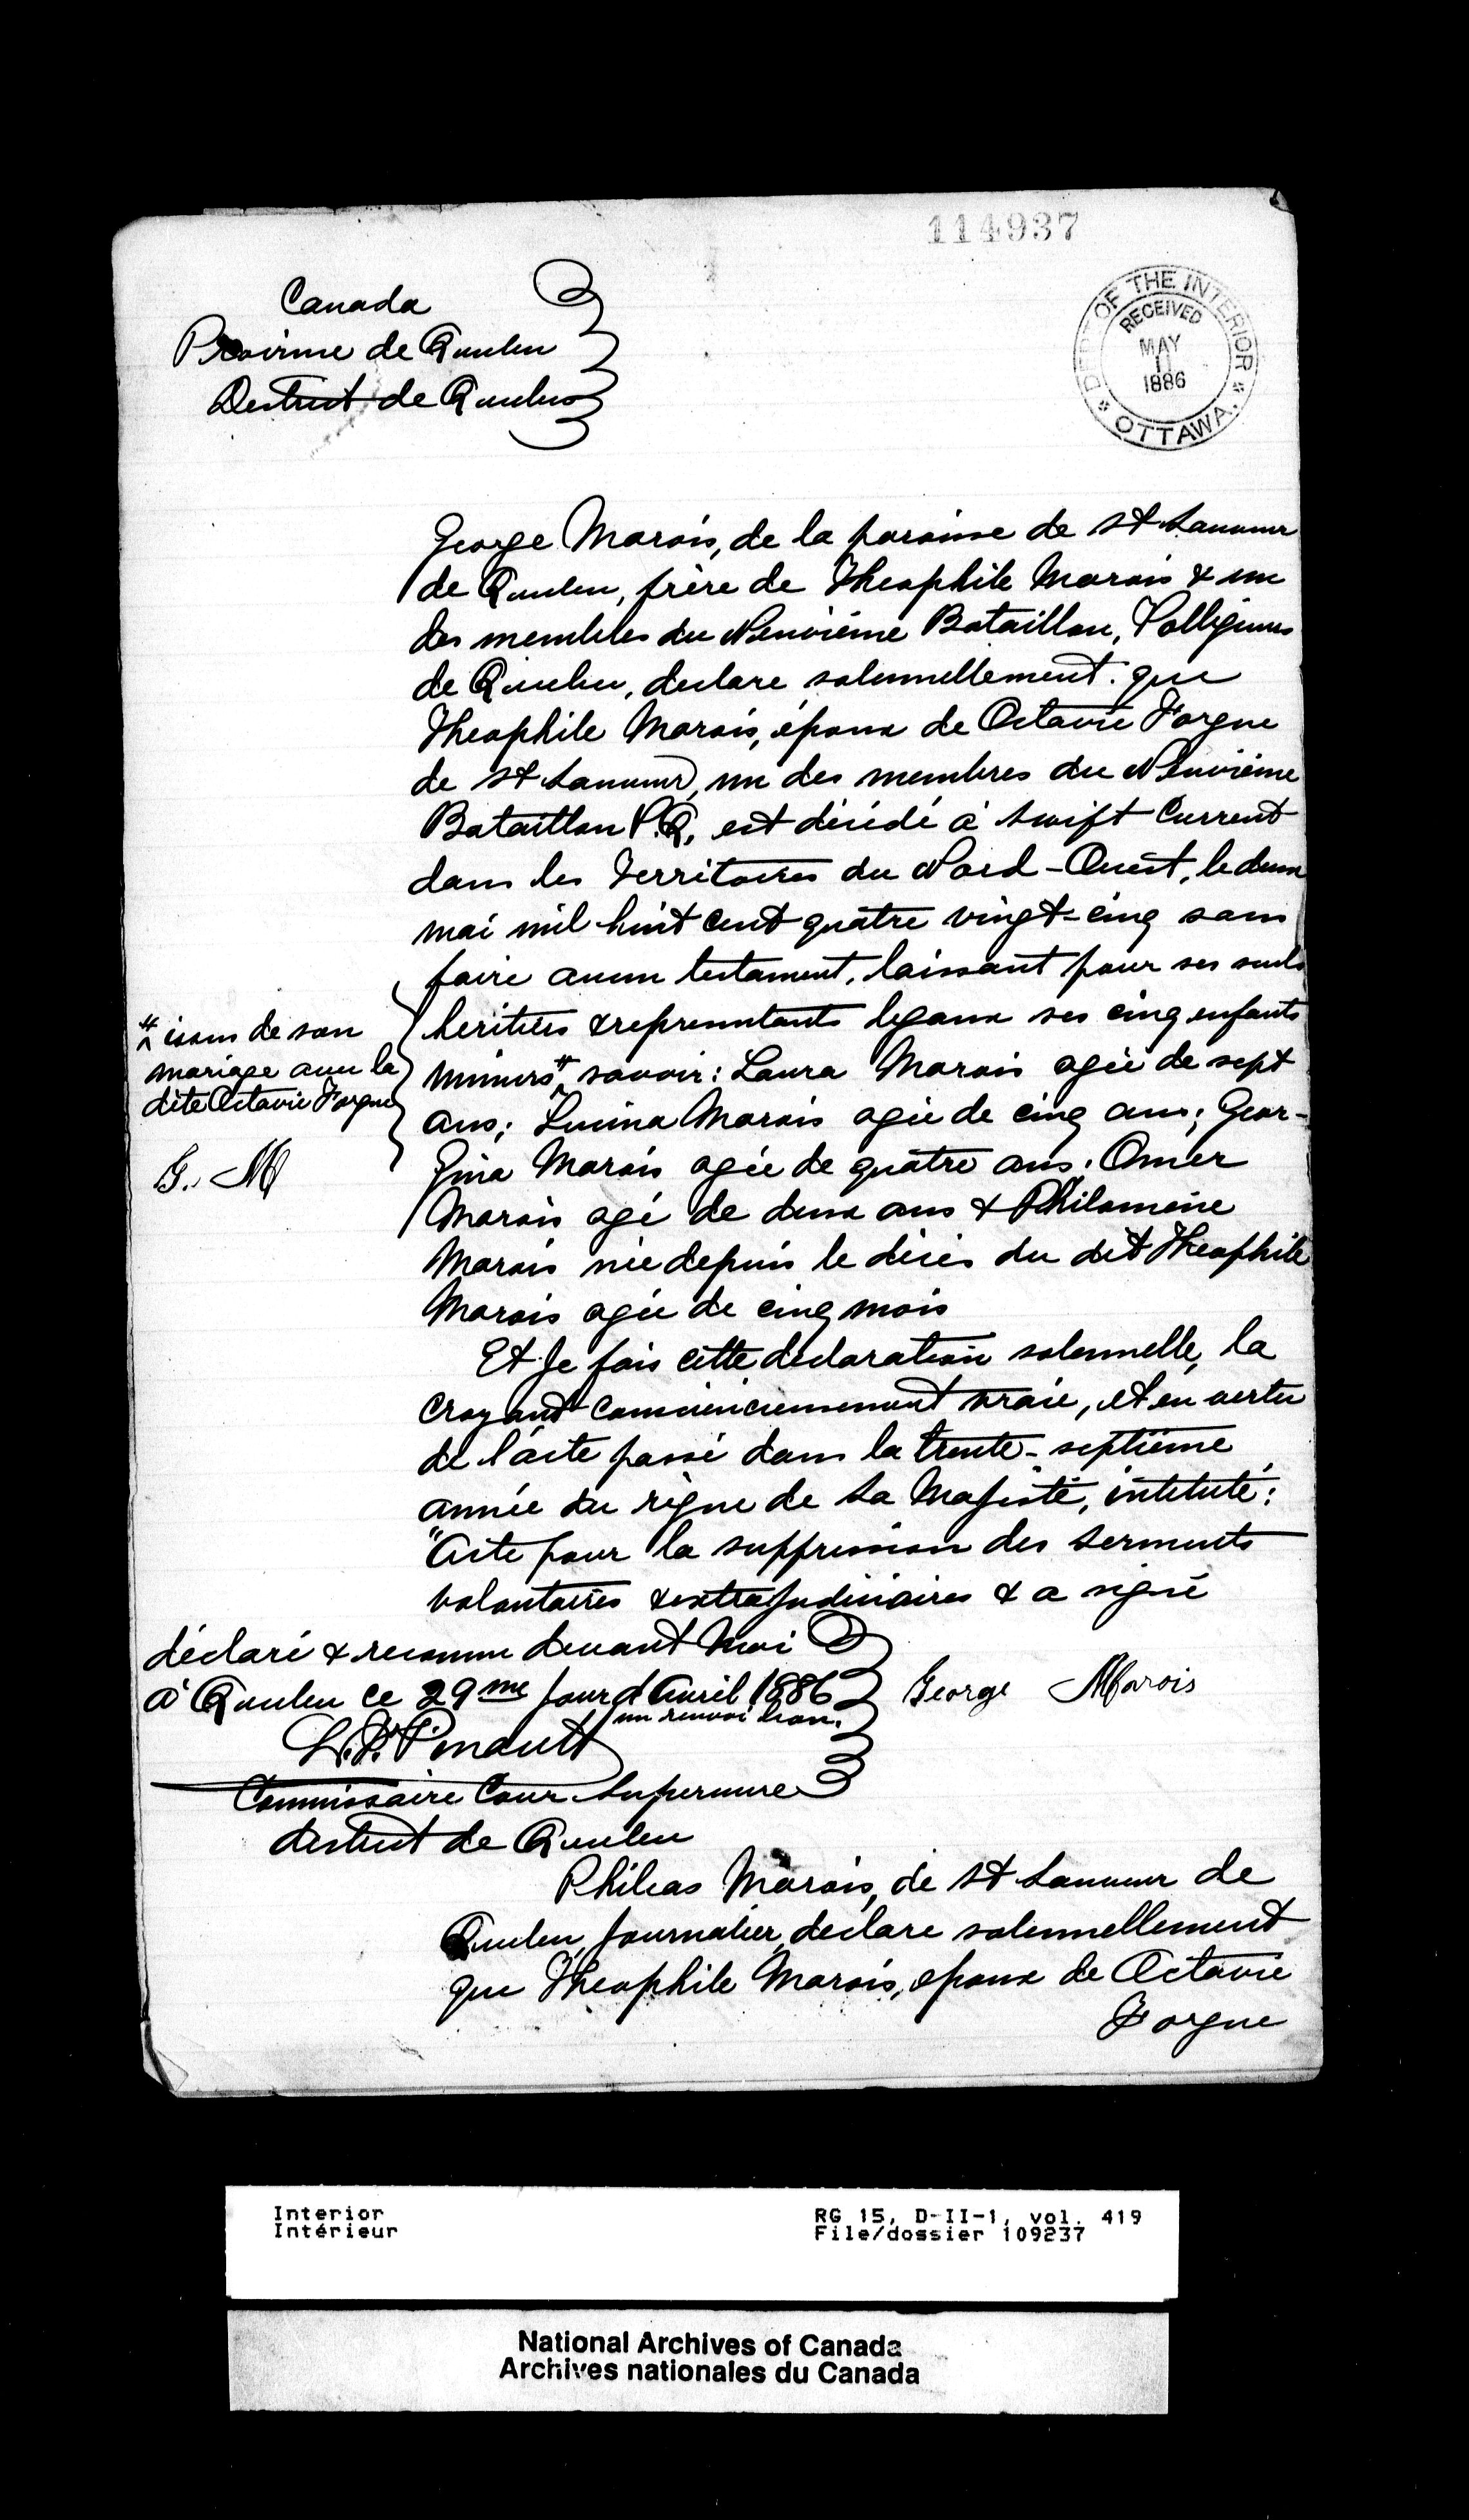 114937
DEPT OF THE INTERIOR
RECEIVED
MAY
11
1886
OTTAWA.
Canada
Province de Quebec
District de Quebec
George Marois, de la paroisse de St Sauveur
de Quebec, frère de Theophile Marois & un
des membres du Neuvième Bataillon, Voltigeurs
de Quebec, declare solennellement que
Theophile Marois, époux de Octavie Forgue
de St Sauveur, un des membres du Neuvième
Bataillon V.Q. est décédé à Swift Current
dans les Territoires du Nord-Ouest, le deux
mai mil huit cent quatre vingt-cinq sans
faire aucun testament, laissant pour ses seuls
heritiers & representants legaux ses cinq enfants
mineurs # savoir: Laura Marois agée de sept
# issus de son
mariage avec la
dite Octavie Forgue
G. M
ans; Lucina Marois agée de cinq ans; Geor-
gina Marois agée de quatre ans; Omer
Marois agé de deux ans & Philomène
Marois née depuis le décès du dit Theophile
Marois agée de cinq mois
Et Je fais cette declaration solennelle, la
croyant consciencieusement vraie, et en vertu
de l'acte passé dans la trente-septième
année du règne de Sa Majesté, intitulé:
"Acte pour la suppression des serments
volontaires & extrajudiciaires & a signé
déclaré & reconnu devant moi
à Quebec ce 29me jour d'Avril 1886
un renvoi bon.
George Marois
L.F. Pinault
Commissaire Cour Superieure
district de Quebec
Phileas Marois, de St Sauveur de
Quebec, journalier, declare solennellement
que Theophile Marois, epoux de Octavie
Forgue
Interior
Intérieur
RG 15, D-II-1, vol. 419
File/dossier 109237
National Archives of Canada
Archives nationales du Canada